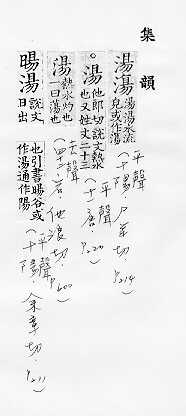 集韻
湯湯水流
皃或作湯
(平聲十陽·尸羊切·P.214)
○湯 他郎切說文熱水
也又姓文二十三
(平聲十一唐·P.220)
湯 熱水灼也
一曰蕩也
(去聲·他浪切·P.600)
暘湯 說文
日出
也引書暘谷或
作湯通作陽
(平聲十陽·余章切·P.211)